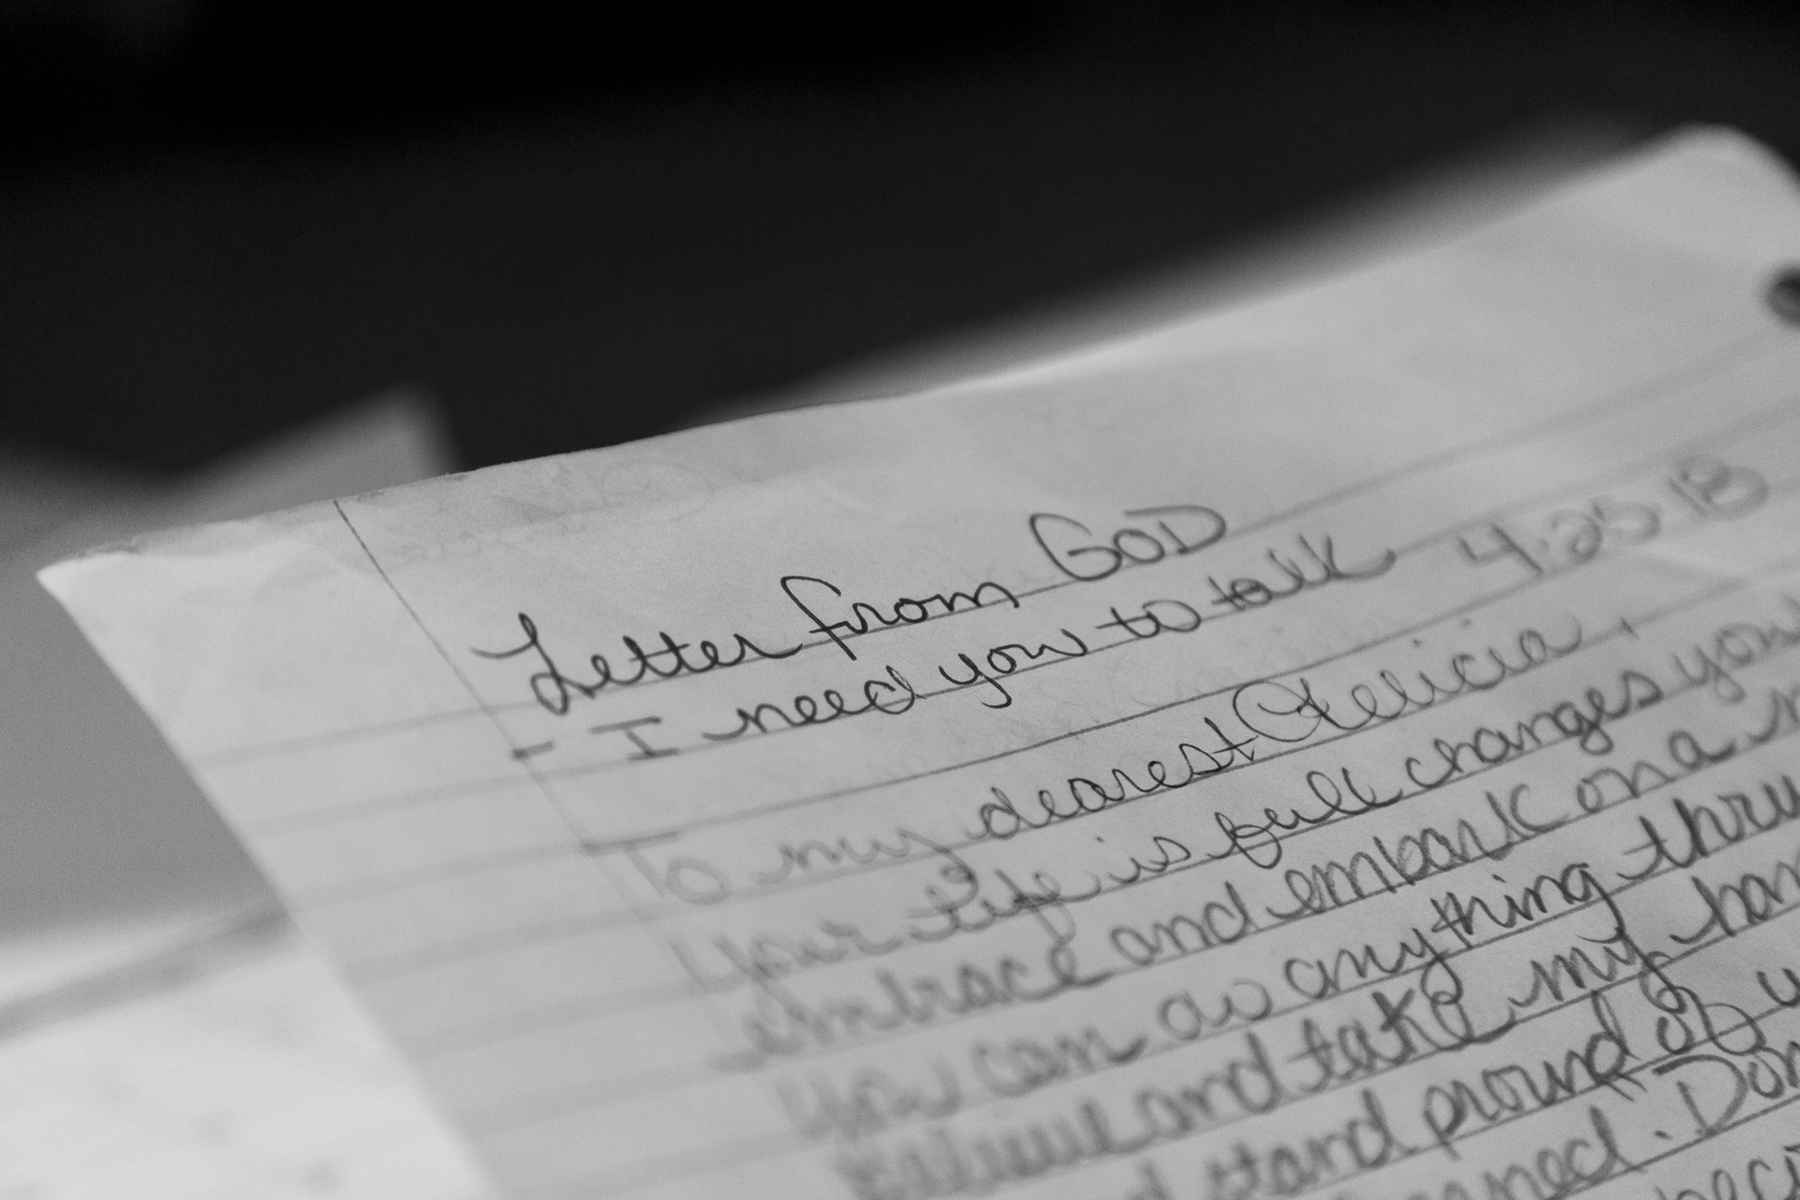 Letter from GOD
- I need you to talk 4.25.18
To my dearest Felicia,
Your life is full changes you
embrace and embark on a
You can do anything thru
believe and take my han
stand proud of
Don